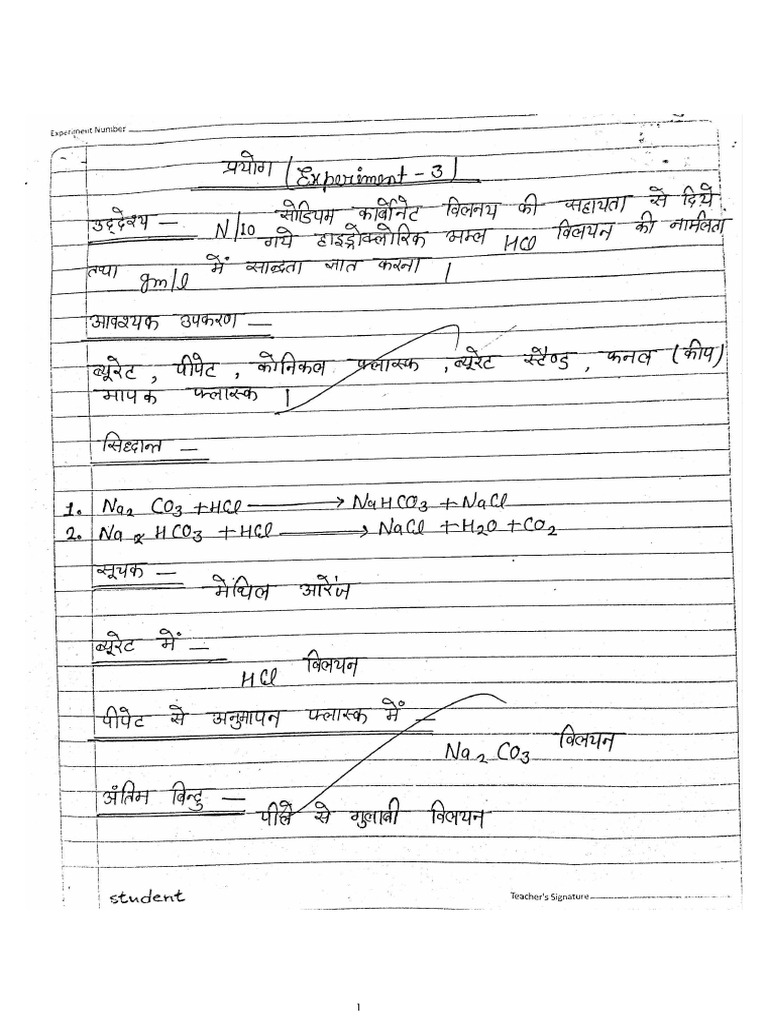 Experiment Number
प्रयोग (Experiment - 3)
उद्देश्य — N/10 सोडियम कार्बोनेट विलनय की सहायता से दिये
गये हाइड्रोक्लोरिक अम्ल HCl विलयन की नार्मलता
तथा gm/l में सान्द्रता ज्ञात करना ।
आवश्यक उपकरण —
ब्यूरेट , पीपेट , कोनिकल फ्लास्क , ब्यूरेट स्टैण्ड , फनल (कीप)
मापक फ्लास्क ।
सिध्दान्त —
1. Na2 CO3 + HCl → NaHCO3 + NaCl
2. Na HCO3 + HCl → NaCl + H2O + CO2
सूचक —
मेथिल आरेंज
ब्यूरेट में —
HCl विलयन
पीपेट से अनुमापन फ्लास्क में —
Na2 CO3 विलयन
अंतिम विन्दु —
पीले से गुलाबी विलयन
student
Teacher's Signature
1